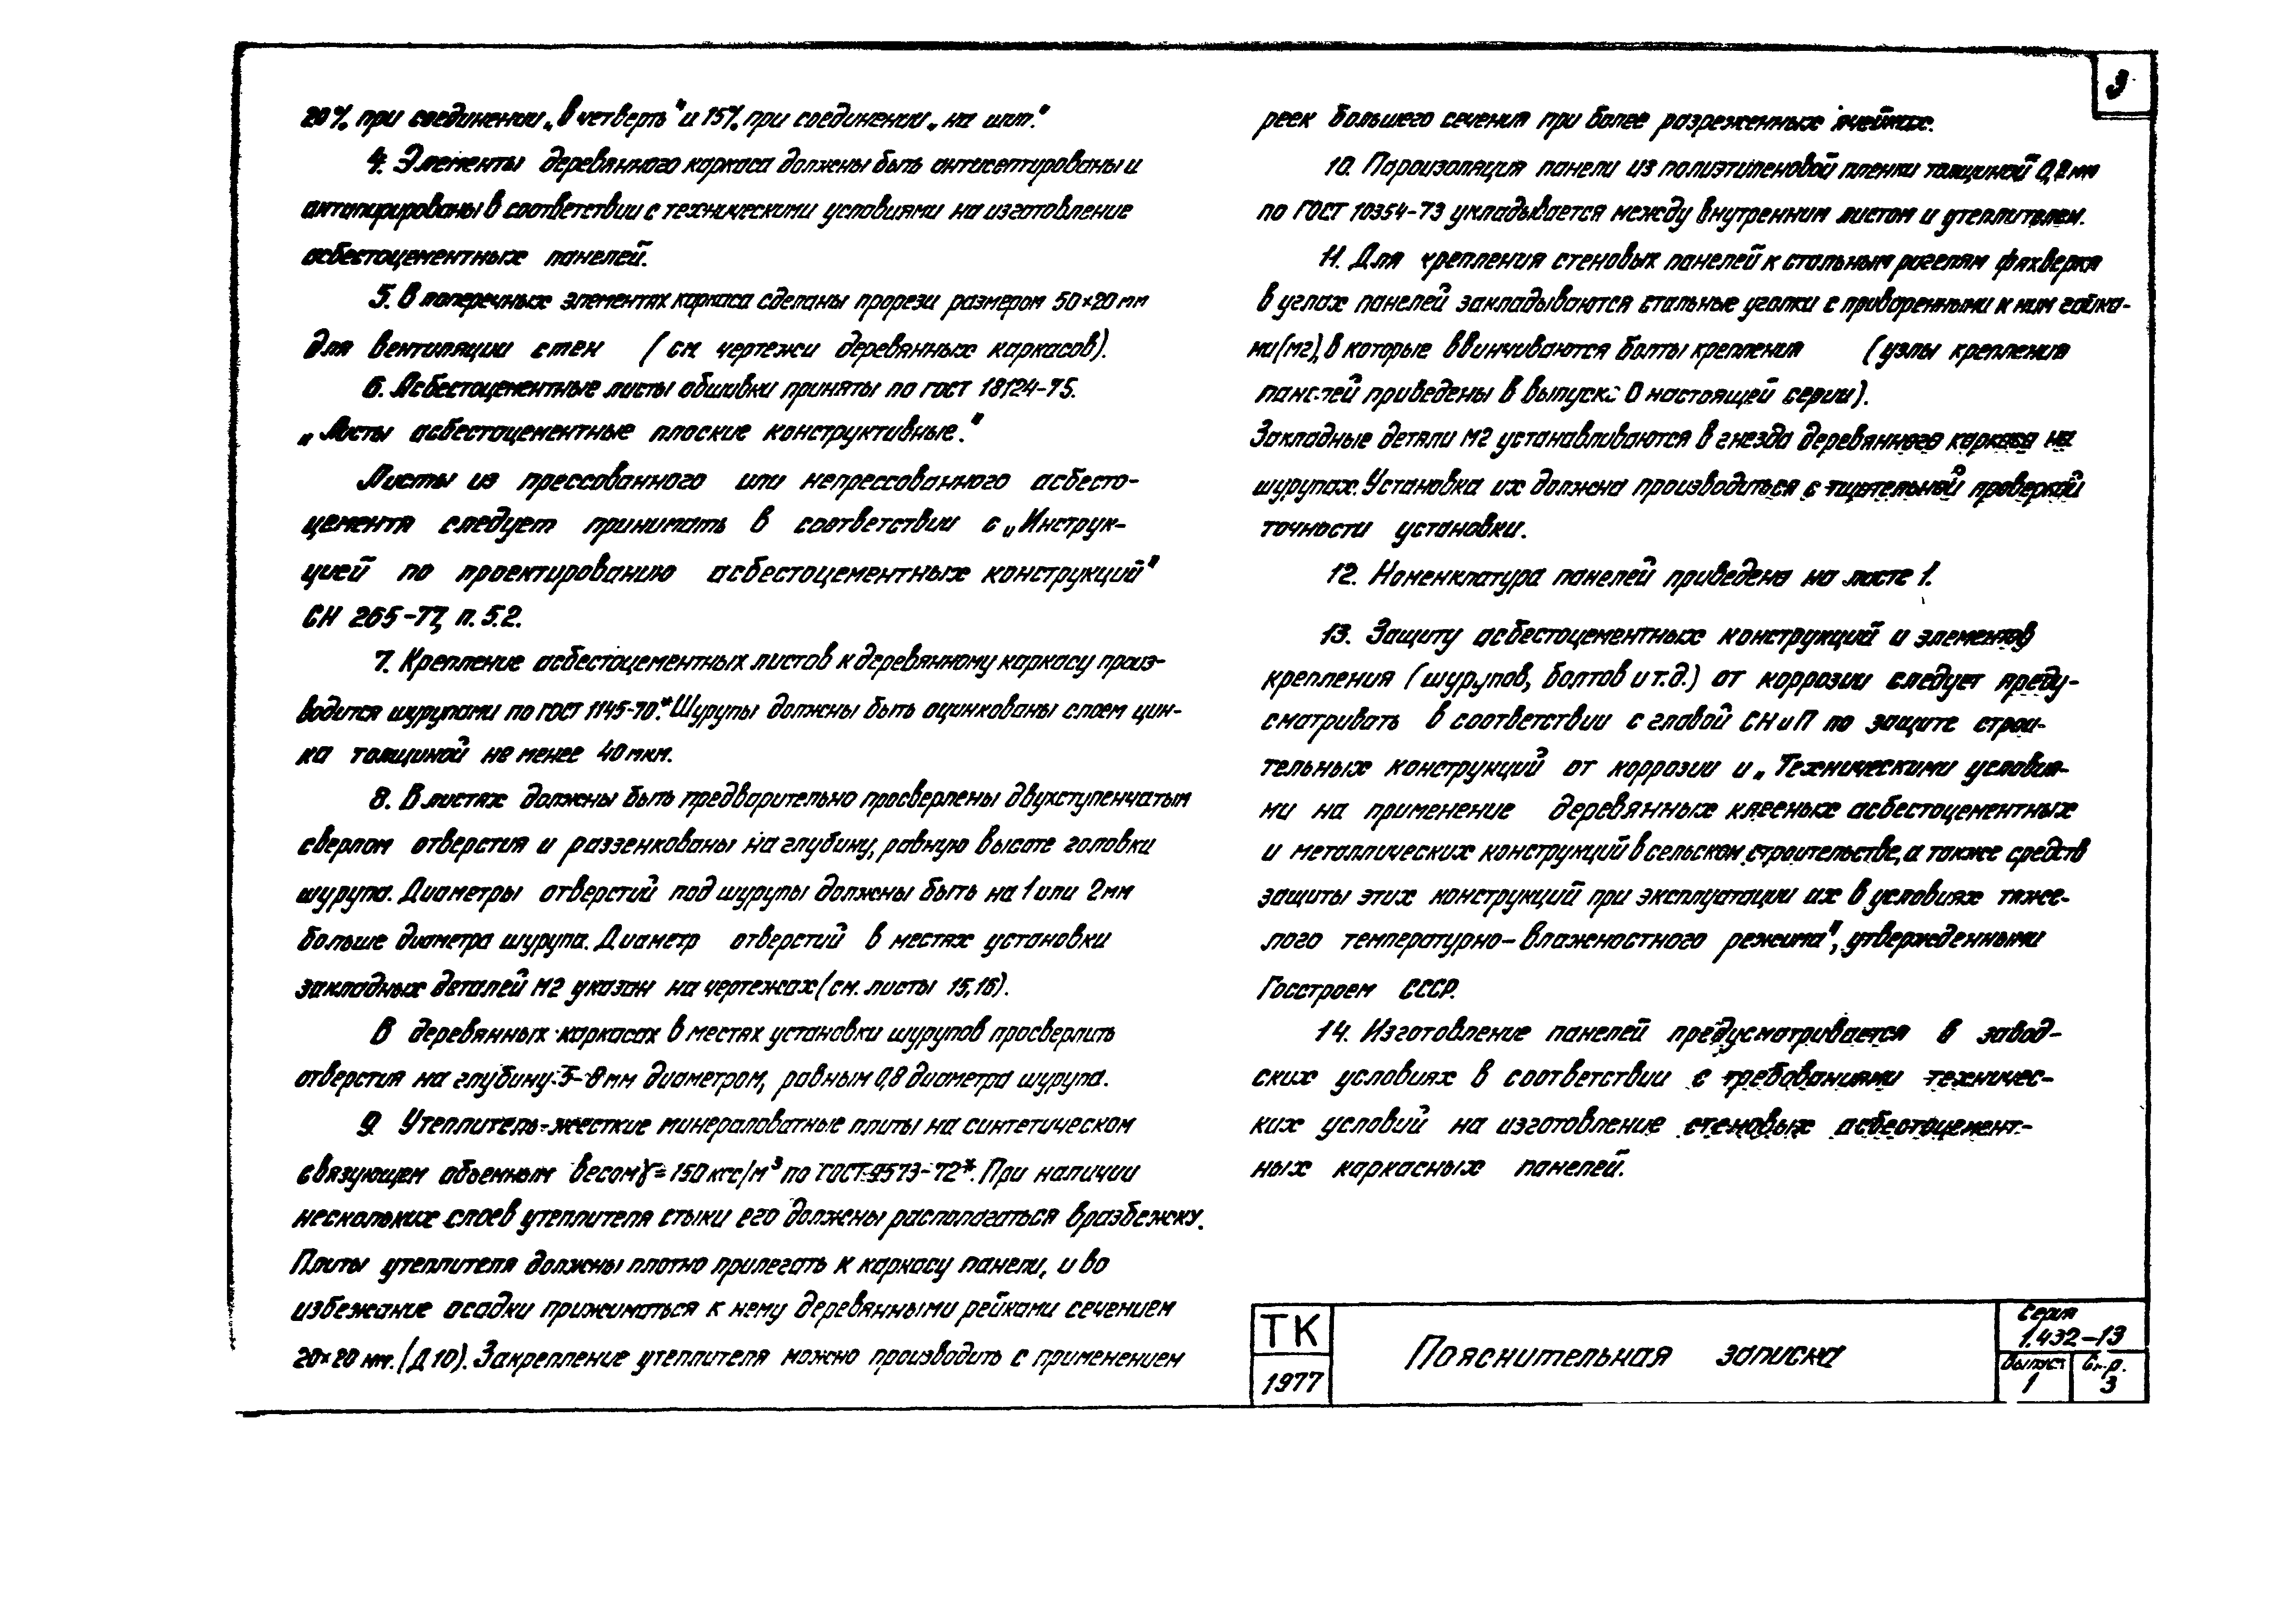 3
20% при соединении „в четверть" и 15% при соединении „на шип."
4. Элементы деревянного каркаса должны быть антисептированы и
антипирированы в соответствии с техническими условиями на изготовление
асбестоцементных панелей.
5. В поперечных элементах каркаса сделаны прорези размером 50×20 мм
для вентиляции стен (см. чертежи деревянных каркасов).
6. Асбестоцементные листы обшивки приняты по ГОСТ 18124-75.
„Листы асбестоцементные плоские конструктивные."
Листы из прессованного или непрессованного асбесто-
цемента следует принимать в соответствии с „Инструк-
цией по проектированию асбестоцементных конструкций"
СН 265-77, п. 5.2.
7. Крепление асбестоцементных листов к деревянному каркасу произ-
водится шурупами по ГОСТ 1145-70.* Шурупы должны быть оцинкованы слоем цин-
ка толщиной не менее 40 мкм.
8. В листах должны быть предварительно просверлены двухступенчатым
сверлом отверстия и раззенкованы на глубину, равную высоте головки
шурупа. Диаметры отверстий под шурупы должны быть на 1 или 2 мм
больше диаметра шурупа. Диаметр отверстий в местах установки
закладных деталей М2 указан на чертежах (см. листы 15, 16).
В деревянных каркасах в местах установки шурупов просверлить
отверстия на глубину 5-8 мм диаметром, равным 0,8 диаметра шурупа.
9. Утеплитель - жесткие минераловатные плиты на синтетическом
связующем объемным весом γ = 150 кгс/м³ по ГОСТ 9573-72*. При наличии
нескольких слоев утеплителя стыки его должны располагаться вразбежку.
Плиты утеплителя должны плотно прилегать к каркасу панели, и во
избежание осадки прижиматься к нему деревянными рейками сечением
20×20 мм. (Д 10). Закрепление утеплителя можно производить с применением
реек большего сечения при более разреженных ячейках.
10. Пароизоляция панели из полиэтиленовой пленки толщиной 0,2 мм
по ГОСТ 10354-73 укладывается между внутренним листом и утеплителем.
11. Для крепления стеновых панелей к стальным ригелям фахверка
в углах панелей закладываются стальные уголки с приваренными к ним гайка-
ми (М2), в которые ввинчиваются болты крепления (узлы крепления
панелей приведены в выпуске 0 настоящей серии).
Закладные детали М2 устанавливаются в гнезда деревянного каркаса на
шурупах. Установка их должна производиться с тщательной проверкой
точности установки.
12. Номенклатура панелей приведена на листе 1.
13. Защиту асбестоцементных конструкций и элементов
крепления (шурупов, болтов и т.д.) от коррозии следует преду-
сматривать в соответствии с главой СНиП по защите строи-
тельных конструкций от коррозии и „Техническими условия-
ми на применение деревянных клееных асбестоцементных
и металлических конструкций в сельском строительстве, а также средств
защиты этих конструкций при эксплуатации их в условиях тяже-
лого температурно-влажностного режима", утвержденными
Госстроем СССР.
14. Изготовление панелей предусматривается в завод-
ских условиях в соответствии с требованиями техничес-
ких условий на изготовление стеновых асбестоцемент-
ных каркасных панелей.
ТК
1977
Пояснительная записка
Серия
1.432-13
Выпуск Стр.
1 3